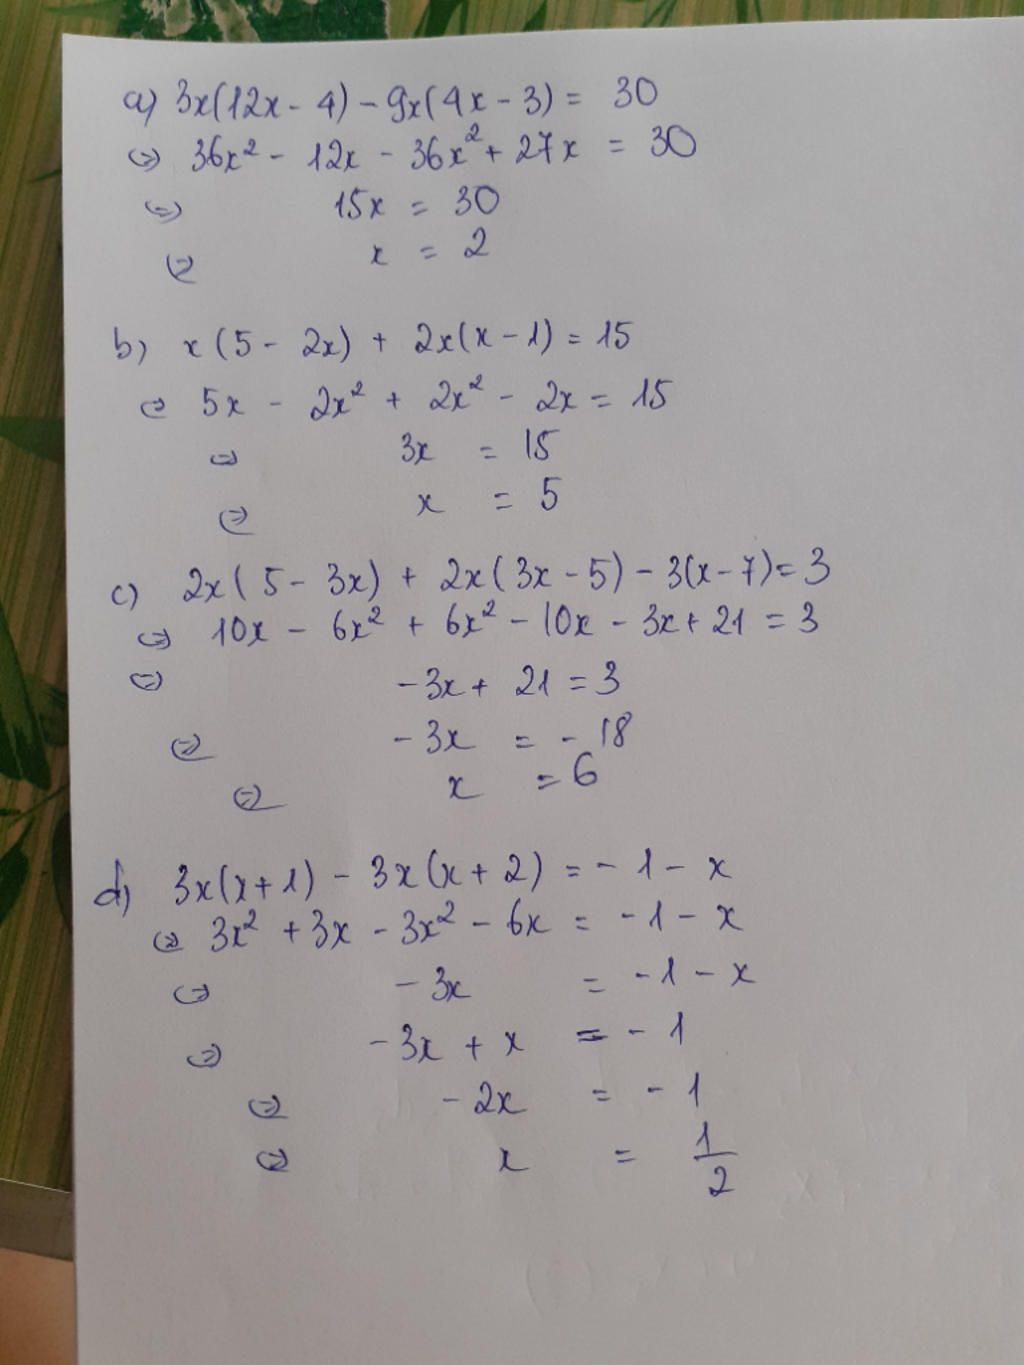 a) 3x(12x - 4) - 9x(4x - 3) = 30
⇔ 36x² - 12x - 36x² + 27x = 30
⇔ 15x = 30
⇔ x = 2
b) x(5 - 2x) + 2x(x - 1) = 15
⇔ 5x - 2x² + 2x² - 2x = 15
⇔ 3x = 15
⇔ x = 5
c) 2x(5 - 3x) + 2x(3x - 5) - 3(x - 7) = 3
⇔ 10x - 6x² + 6x² - 10x - 3x + 21 = 3
⇔ -3x + 21 = 3
⇔ -3x = -18
⇔ x = 6
d) 3x(x + 1) - 3x(x + 2) = -1 - x
⇔ 3x² + 3x - 3x² - 6x = -1 - x
⇔ -3x = -1 - x
⇔ -3x + x = -1
⇔ -2x = -1
⇔ x = 1/2